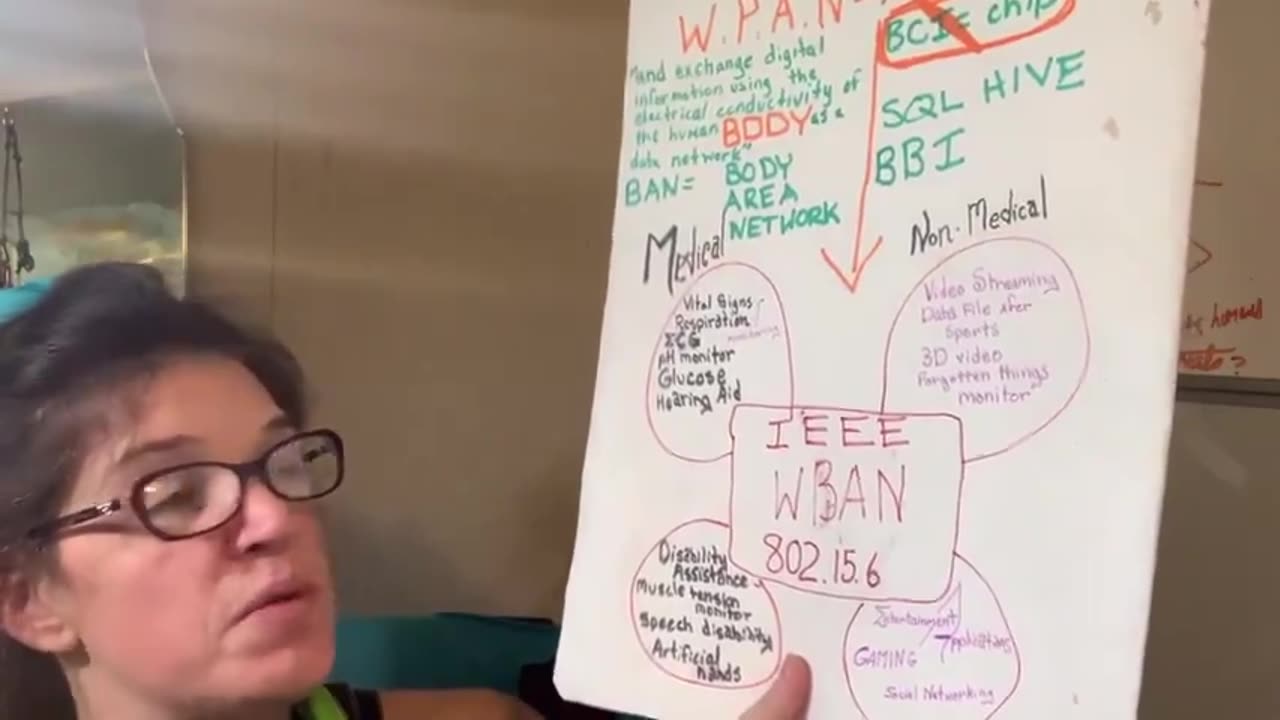 W.P.A.N
"and exchange digital
information using the
electrical conductivity of
the human BODY as a
data network"
BAN= BODY
AREA
NETWORK
BCI= chip
SQL HIVE
BBI
Medical
Vital Signs
Respiration
ECG monitoring
pH monitor
Glucose
Hearing Aid
Non-Medical
Video Streaming
Data File xfer
Sports
3D video
Forgotten things
monitor
IEEE
WBAN
802.15.6
Disability
Assistance
Muscle tension
monitor
Speech disability
Artificial
hands
Entertainment
Applications
GAMING
Social Networking